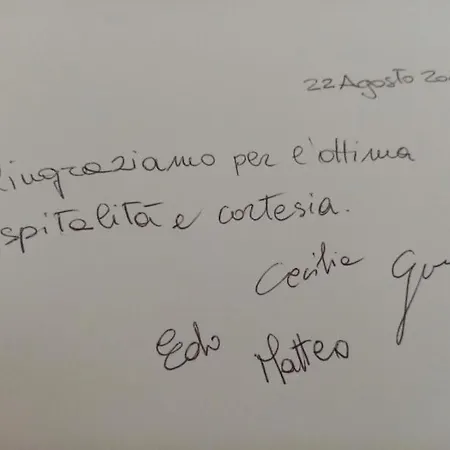 22 Agosto 20
ingraziamo per l'ottima
spitalità e cortesia.
Cecilia
Edo Matteo